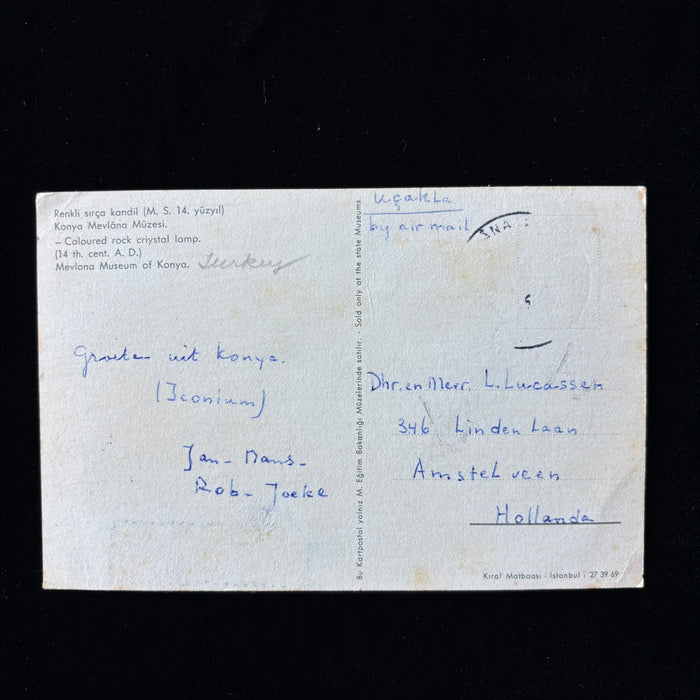 Renkli sırça kandil (M. S. 14. yüzyıl)
Konya Mevlâna Müzesi.
— Coloured rock criystal lamp.
(14 th. cent. A. D.)
Mevlana Museum of Konya. Turkey
Groeten uit Konya.
(Iconium)
Jan - Mans -
Rob - Joeke
Bu Kartpostal yalnız M. Eğitim Bakanlığı Müzelerinde satılır. - Sold only at the state Museums.
Uçakla
by air mail
Dhr. en Mevr. L. Lucassen
346 Linden Laan
Amstelveen
Hollanda
Kıral Matbaası - İstanbul : 27 39 69